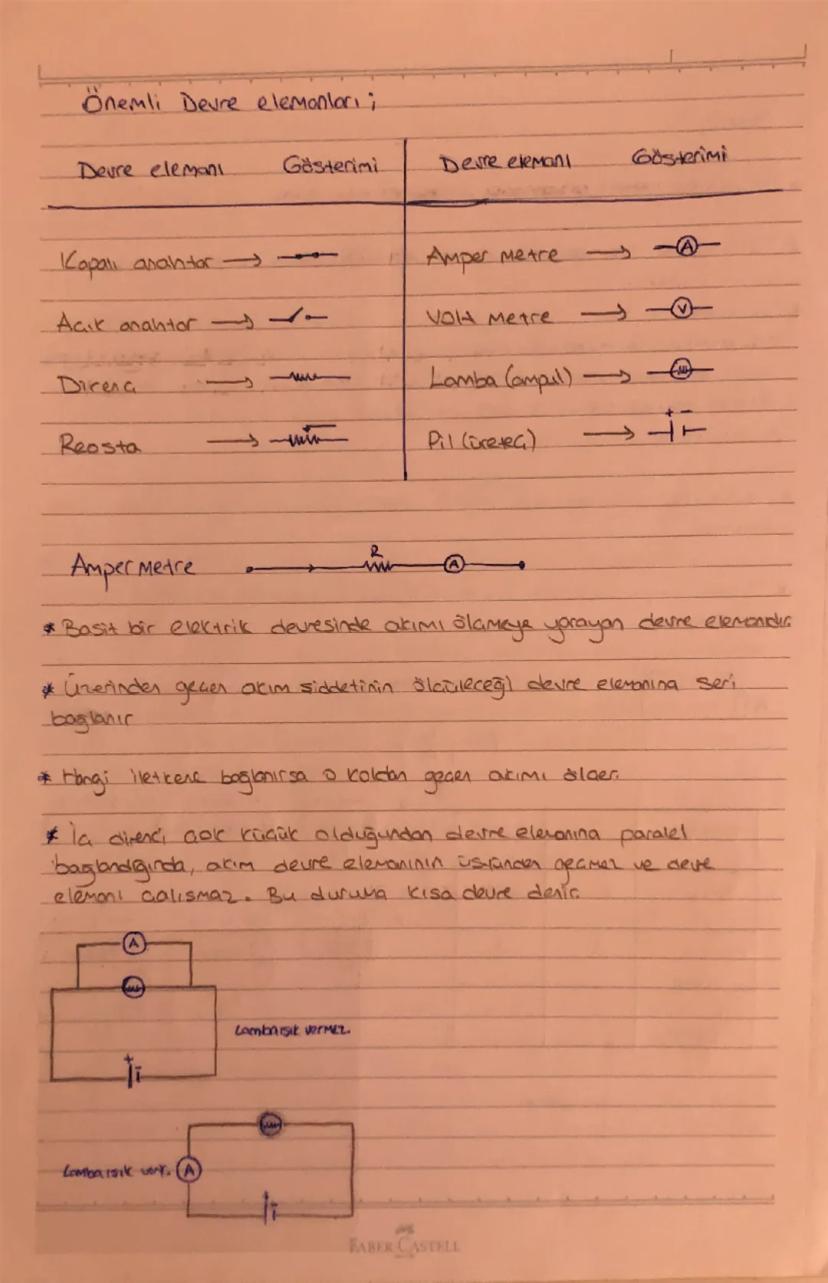 Önemli Devre elemanları;
Devre elemanı Gösterimi Devre elemanı Gösterimi
Kapalı anahtar → Amper Metre → A
Acık anahtar → Volt Metre → V
Direnc → Lamba (ampul) →
Reosta → Pil (üretec) → + -
Ampermetre R A
* Basit bir elektrik devresinde akımı ölcmeye yarayan devre elemanıdır.
* Üzerinden gecen akım siddetinin ölcüleceği devre elemanına seri
baglanır
* Hangi iletkene baglanırsa o koldan gecen akımı ölcer.
* İc direnci cok kücük olduğundan devre elemanına paralel
baglandığında, akım devre elemanının üstünden gecmez ve devre
elemanı calısmaz. Bu duruma kısa devre denir.
A
Lamba ısık vermez.
+ -
Lamba ısık verir. A
-
FABER CASTELL